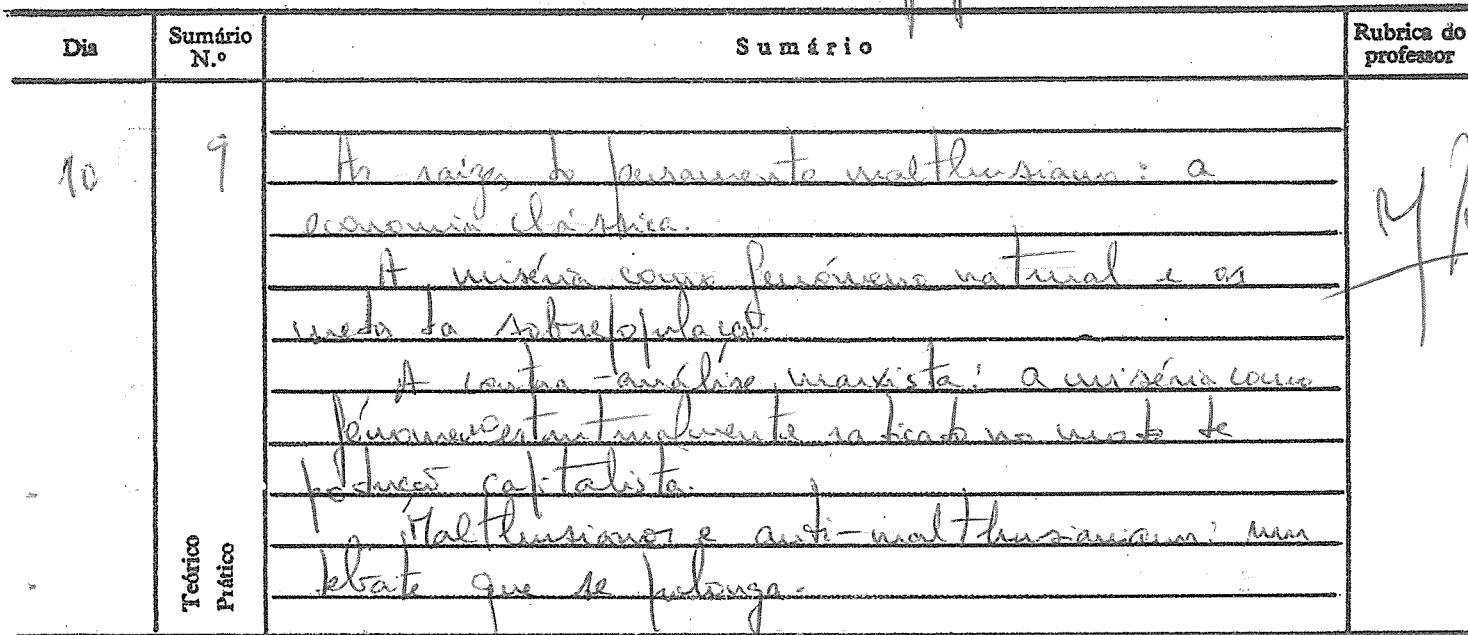 Dia
Sumário N.º
Sumário
Rubrica do professor
10
9
As raízes do pensamento malthusiano: a
economia clássica.
A miséria como fenómeno natural e os
medos da sobrepopulação.
A contra-análise marxista: a miséria como
fenómeno estruturalmente radicado no modo de
produção capitalista.
Malthusianos e anti-malthusianos: um
debate que se prolonga.
Teórico
Prático